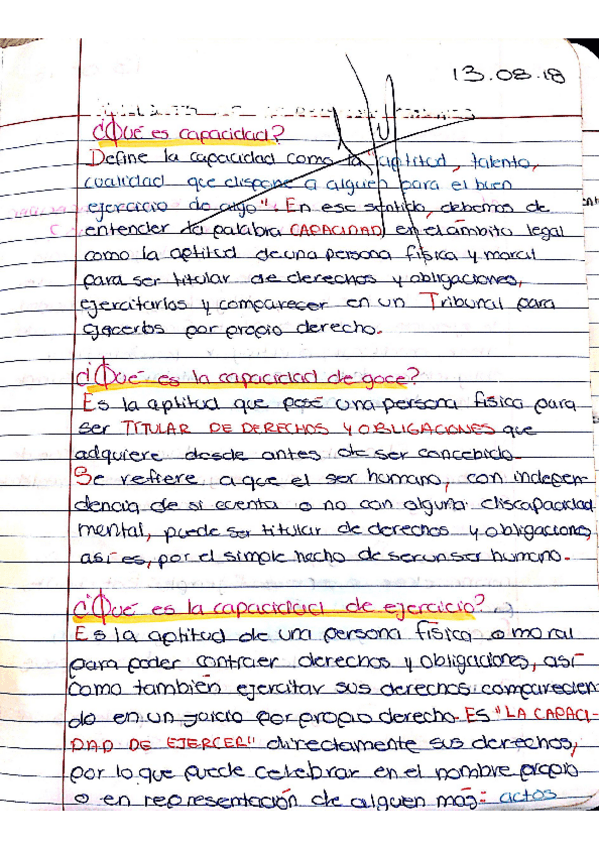 13.08.18
¿Qué es capacidad?
Define la capacidad como la "aptitud, talento,
cualidad que dispone a alguien para el buen
ejercicio de algo". En ese sentido, debemos de
entender la palabra CAPACIDAD, en el ámbito legal
como la aptitud de una persona física y moral
para ser titular de derechos y obligaciones,
ejercitarlos y comparecer en un Tribunal para
por propio derecho.
¿Qué es la capacidad de goce?
Es la aptitud que posé una persona física para
ser TITULAR DE DERECHOS Y OBLIGACIONES que
adquiere desde antes de ser concebido.
Se refiere a que el ser humano, con indepen
dencia de si cuenta o no con alguna discapacidad
mental, puede ser titular de derechos y obligaciones
así es, por el simple hecho de ser un ser humano.
¿Qué es la capacidad de ejercicio?
Es la aptitud de una persona física o moral
para poder contraer derechos y obligaciones, así
como también ejercitar sus derechos comparecien
do en un juicio por propio derecho. ES "LA CAPACI-
DAD DE EJERCER" directamente sus derechos,
por lo que puede celebrar en el nombre propio
o en representación de alguen mas: actos